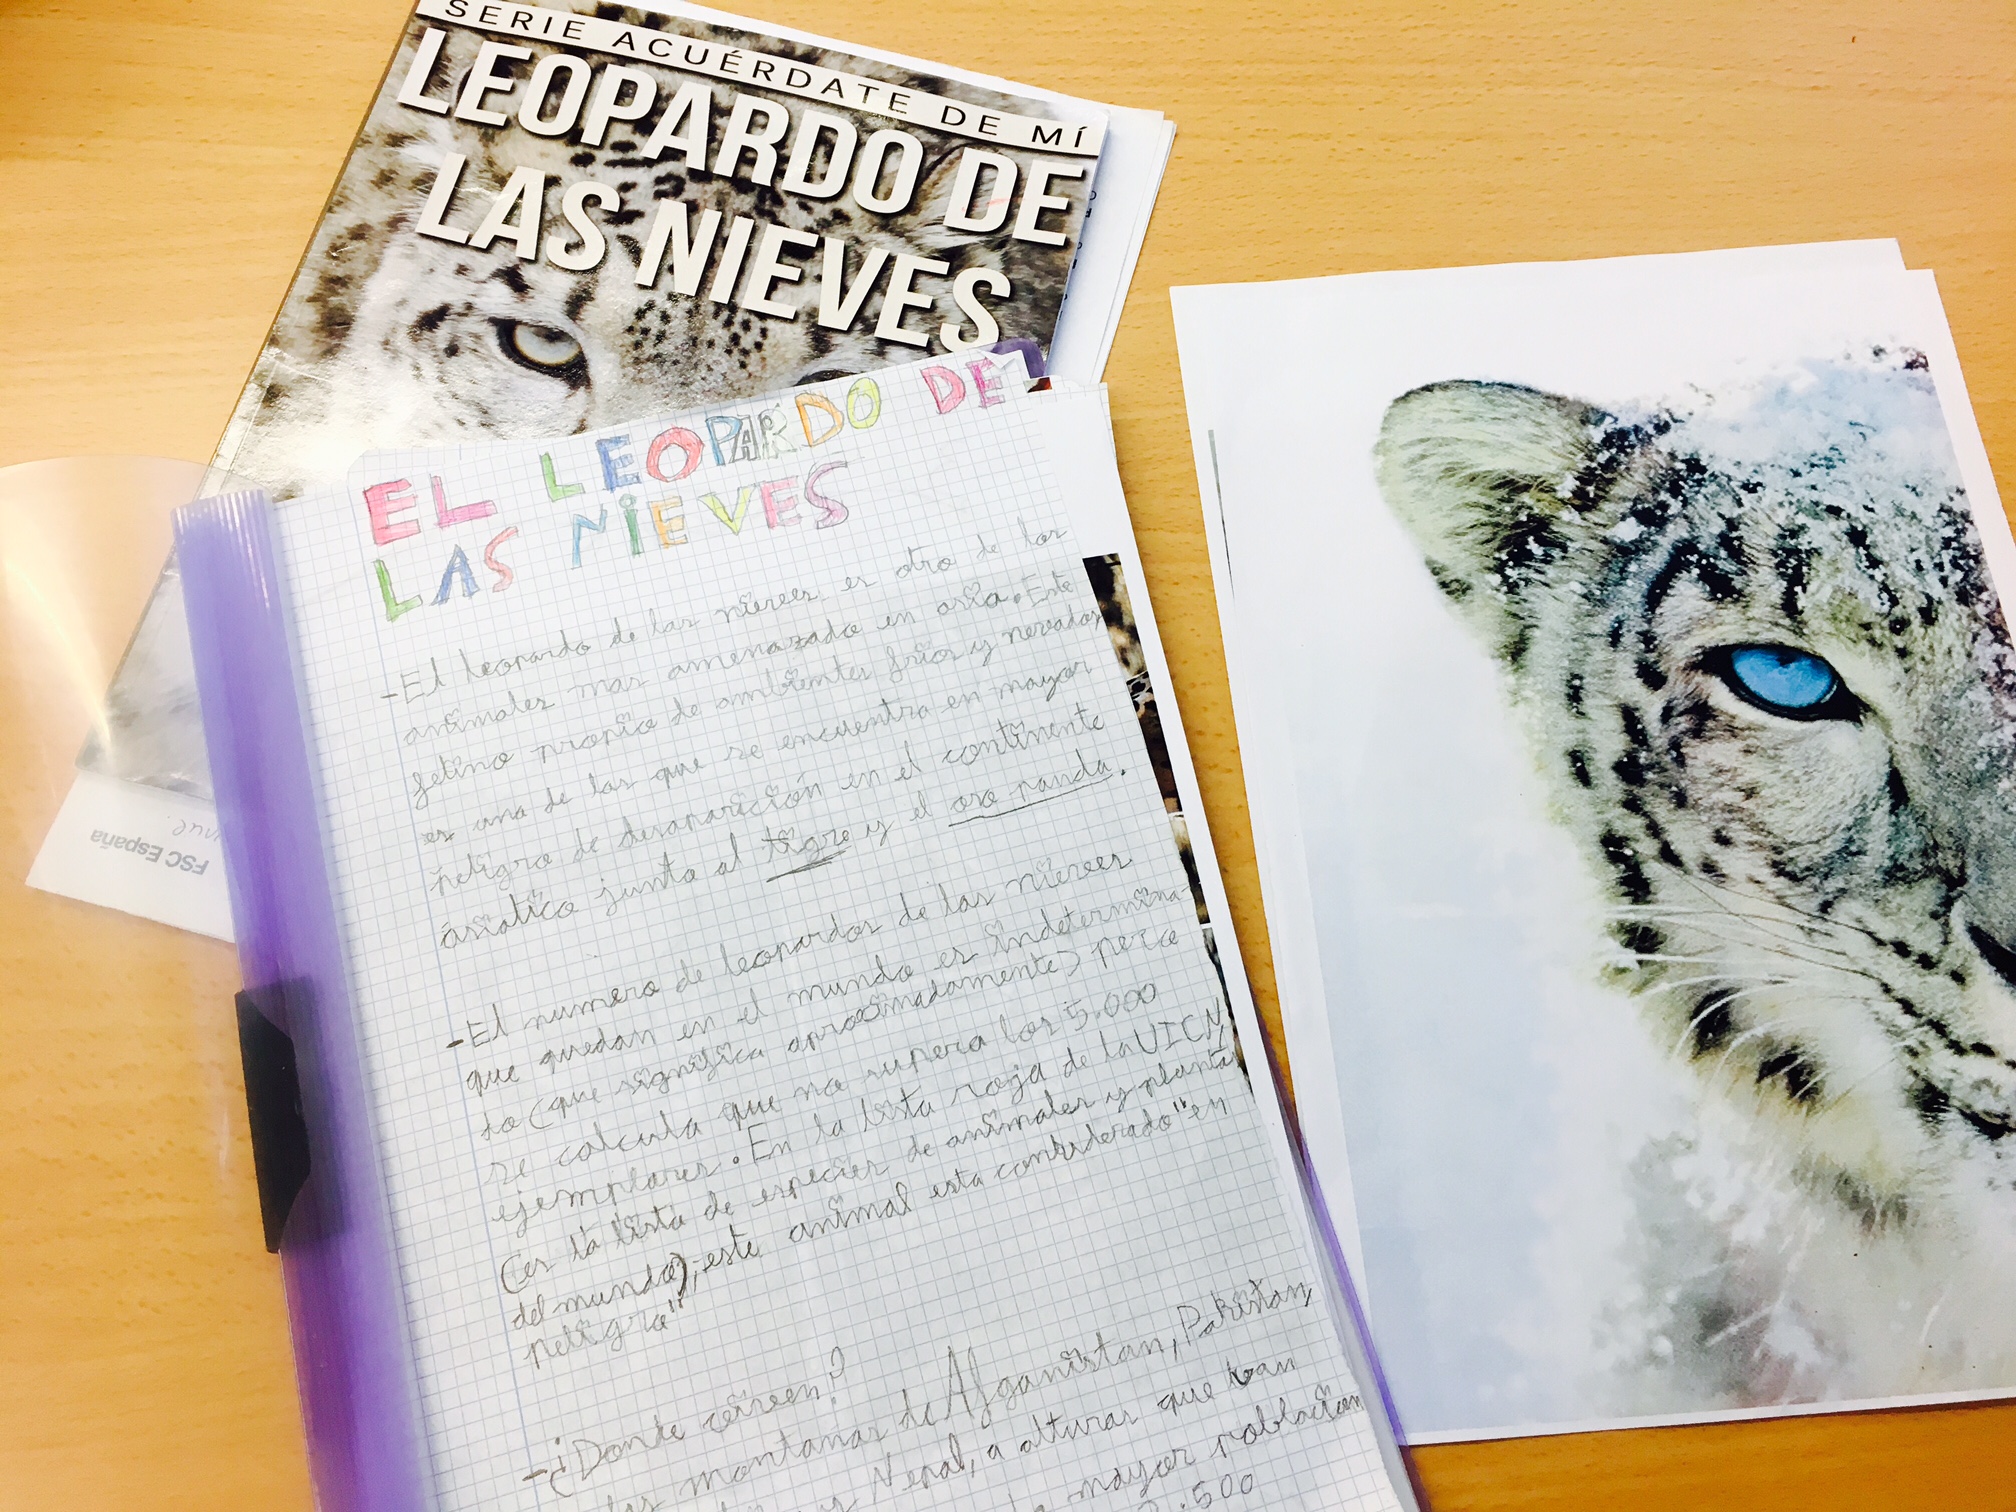 SERIE ACUÉRDATE DE MÍ
LEOPARDO DE
LAS NIEVES
EL LEOPARDO DE
LAS NIEVES
-El leopardo de las nieves es otro de los
animales mas amenazado en asia. Este
felino propio de ambientes frios y nevados
es una de las que se encuentra en mayor
peligro de desaparición en el continente
ásiatico junto al tigre y el oso panda.
-El numero de leopardos de las nieves
que quedan en el mundo es indetermina-
to (que significa aproximadamente) pero
se calcula que no supera los 5.000
ejemplares. En la lista roja de la UICN
(es la lista de especies de animales y plantas
del mundo), este animal esta considerado "en
peligro"
-¿Donde
las montañas de Afganistan, Pakistan,
y Nepal, a alturas que van
mayor poblacion
.500
FSC España